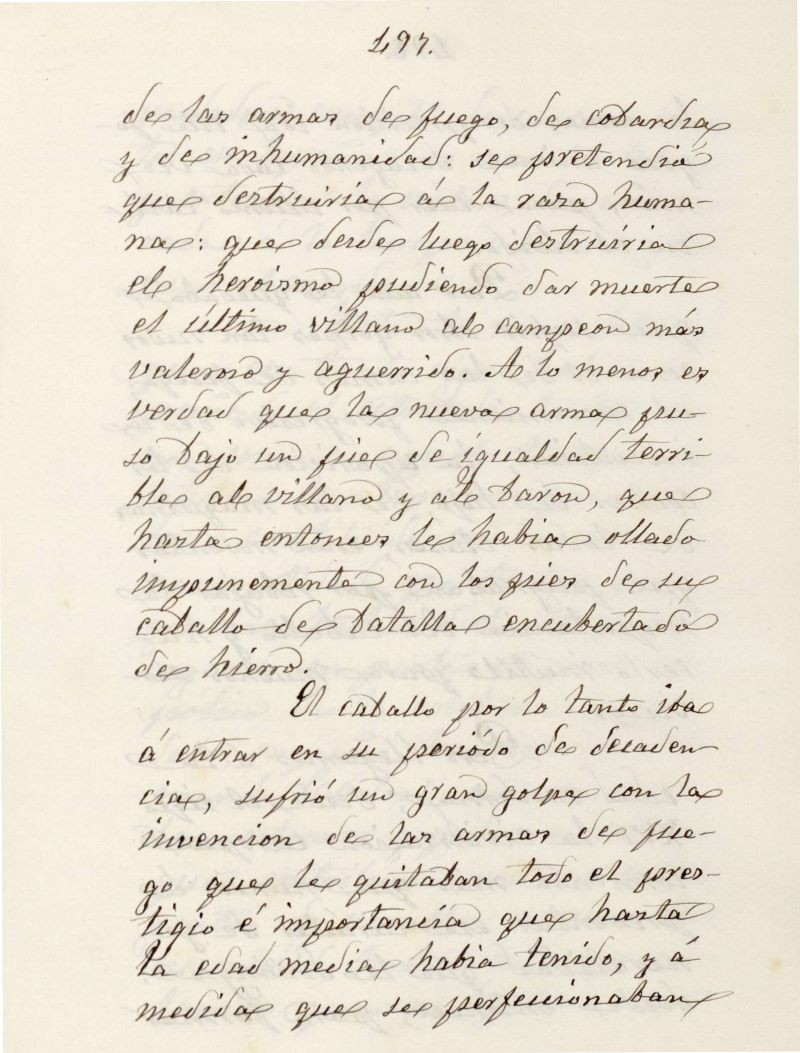 197.
de las armas de fuego, de cobardia
y de inhumanidad: se pretendia
que destruiria á la raza huma-
na: que desde luego destruiria
el heroismo pudiendo dar muerte
el último villano al campeon más
valeroso y aguerrido. A lo menos es
verdad que la nueva arma pu-
so bajo un pie de igualdad terri-
ble al villano y al baron, que
hasta entonces le habia ollado
impunemente con los pies de su
caballo de batalla encubertado
de hierro.
El caballo por lo tanto iba
á entrar en su periódo de decaden
cia, sufrió un gran golpe con la
invencion de las armas de fue-
go que le quitaban todo el pres-
tigio é importancia que hasta
la edad media habia tenido, y á
medida que se perfeccionaban